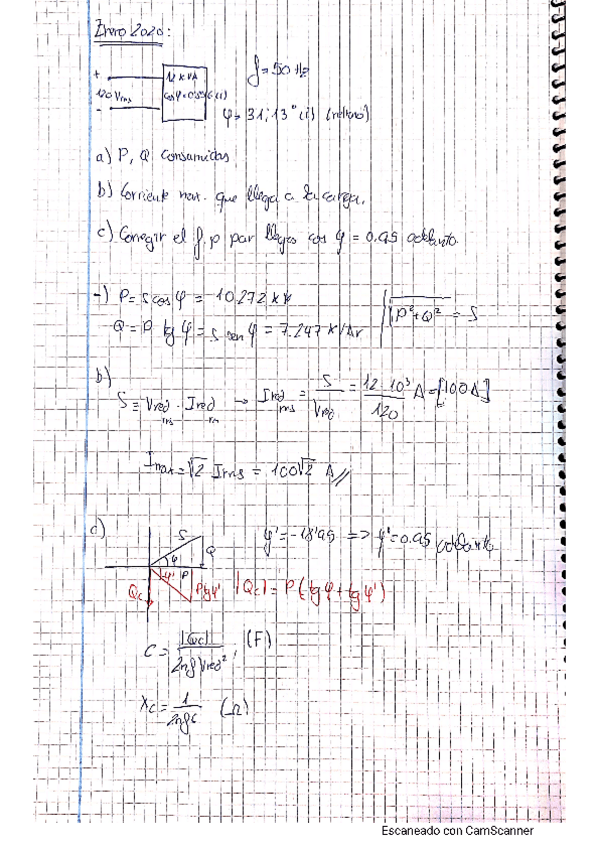 Enero 2020:
+ 12 kVA f = 50 Hz
120 Vrms cos φ = 0.856 (i)
- φ → 31,13° (i) (retraso)
a) P, Q consumidas
b) Corriente max. que llega a la carga.
c) Corregir el f.p par llegar cos φ = 0.95 adelanto.
-) P = S cos φ = 10.272 kW
Q = P tg φ = S sen φ = 7.247 kVAr √P²+Q² = S
b)
S = Vred · Ired → Ired = S/Vred = 12·10³/120 A = [100A]
rms rm rms
Imax = √2 Irms = 100√2 A //
c) S φ Q φ' = -18'95 => φ' = 0.95 adelanto
Qc φ' P Ptgφ' |Qc| = P (tg φ + tg φ')
C = |Qc| / 2πf Vred² , (F)
Xc = 1 / 2πfC (Ω)
Escaneado con CamScanner